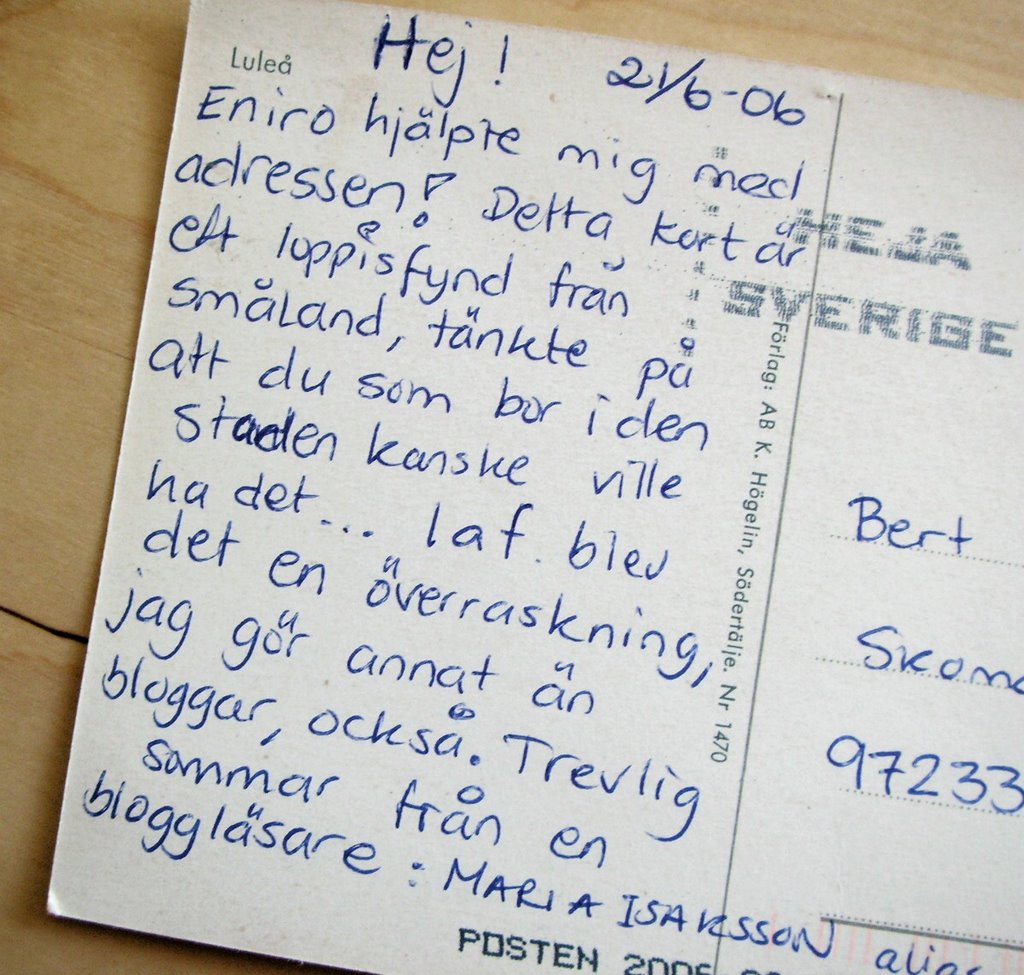 Luleå
Hej! 21/6-06
Eniro hjälpte mig med
adressen! Detta kort är
ett loppisfynd från
småland, tänkte på
att du som bor i den
staden kanske ville
ha det... Iaf. blev
det en överraskning,
jag gör annat än
bloggar, också. Trevlig
sommar från en
bloggläsare: MARIA ISAKSSON alias
HEJA
SVERIGE
Förlag: AB K. Högelin, Södertälje. Nr 1470
Bert
Skoma
97233
POSTEN 2006